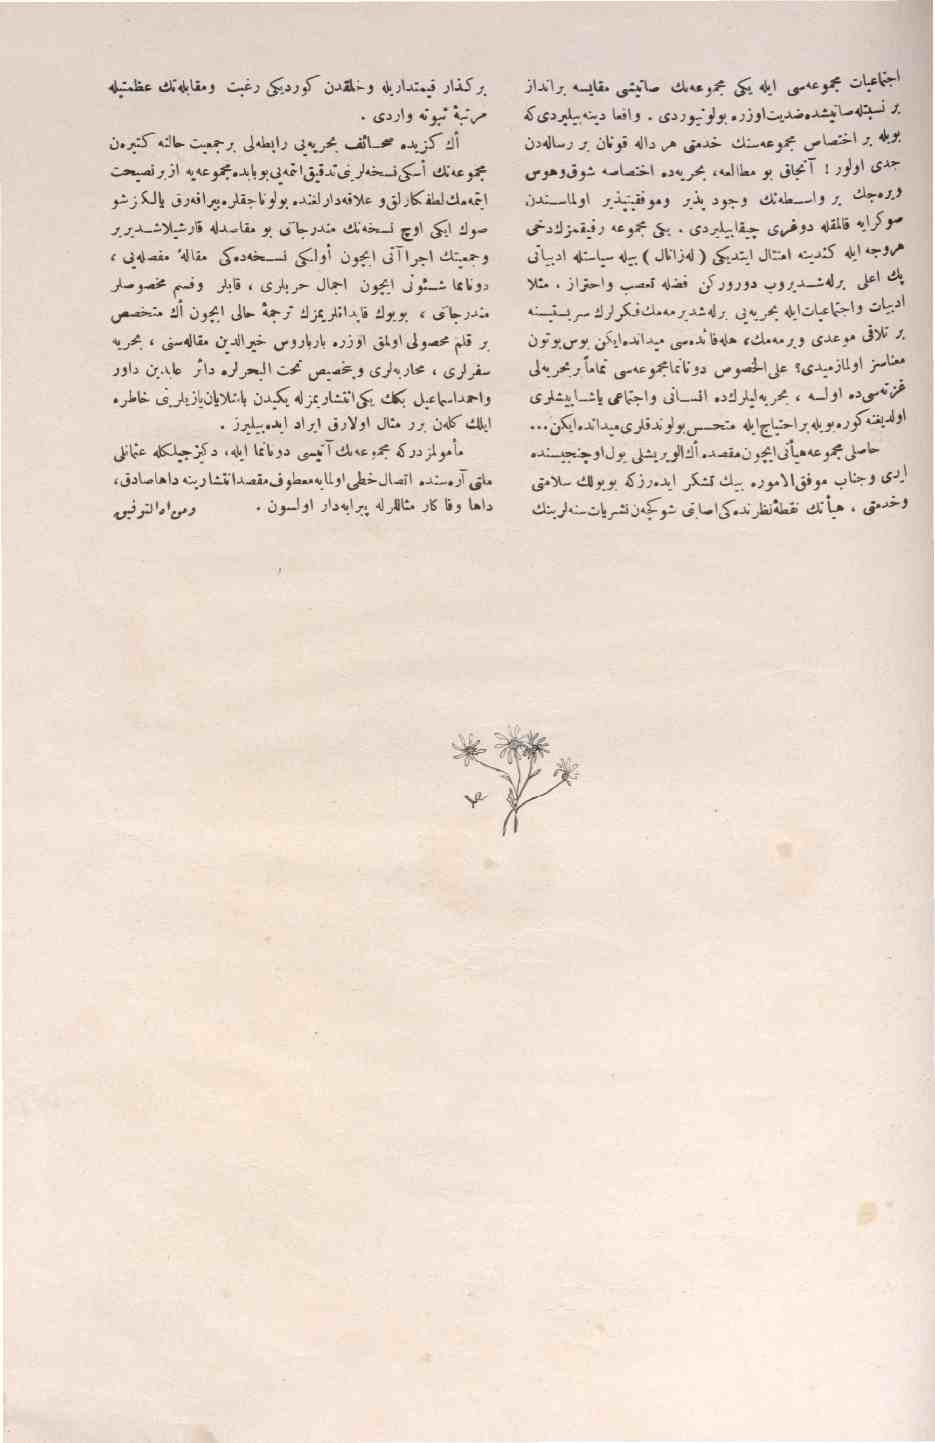 اجتماعیات مجموعه‌سی ایله یکی مجموعه‌مك صاتیشی مقایسه بر انداز
بر نسبتله صاتیشده ضدیت اوزره بولونیوردی . واقعا دینه بیلیردی که
بویله بر اختصاص مجموعه‌سنك خدمتی هر داله قونان بر رساله‌دن
جدی اولور ! آنجاق بو مطالعه، بحریه‌ده اختصاصه شوق وهوس
ویره‌جك بر واسطه‌نك وجود پذیر وموفقیتپذیر اولماسندن
صوکرایه قالمقله دوغری چیقابیلیردی . یکی مجموعه رفیقمزك دخی
هروجه ایله کندینه امتثال ایتدیکی ( له‌زانال ) بیله سیاستله ادبیاتی
پك اعلی برله‌شدیروب دورورکن فضله تعصب واحتراز . مثلا
ادبیات واجتماعیات ایله بحریه‌یی برله‌شدیرمه‌مك فکرلرك سربستیسنه
بر تلاقی موعدی ویرمه‌مك، هله فائده‌سی میدانده ایکن بوس بوتون
معناسز اولمازمیدی؟ علی الخصوص دونانما مجموعه‌سی تماماً بر بحریه‌لی
غزته‌سی ده اولسه ، بحریه‌لیلرك ده انسانی واجتماعی یاشاییشلری
اولدیغنه کوره بویله بر احتیاج ایله متحسس بولوندقلری میدانده ایکن...
حاصلی مجموعه هیأتی ایچون مقصده أك الویریشلی یول اوچنجیسنده
ایدی وجناب موفق الاموره بیك تشکر ایده‌رزکه بویولك سلامتی
وخدمتی ، هیأتك نقطهٔ نظرنده‌کی اصابتی شو کچه‌ن نشریات سنه‌لرینك
بر کذار قیمتداریله وخلقدن کوردیکی رغبت ومقابله‌نك عظمتیله
مرتبهٔ ثبوته واردی .
أك کزیده صحائف بحریه‌یی رابطه‌لی بر جمعیت حالنه کتیره‌ن
مجموعه‌نك أسکی نسخه‌لرینی تدقیق ایتمه‌یی بو بابده مجموعه‌یه از بر نصیحت
ایتمه‌مك لطفکارلق و علاقه‌دارلغنده بولوناجقلره بیراقه‌رق یالکز شو
صوك ایکی اوچ نسخه‌نك مندرجاتی بو مقاصدله قارشیلاشدیریر
وجمعیتك اجراآتی ایچون أولکی نسخه‌ده‌کی مقالهٔ مفصله‌یی ،
دونانما شئونی ایچون اجمال حربلری ، قابلر وقسم مخصوصلر
مندرجاتی ، بویوك قاپداغلریمزك ترجمهٔ حالی ایچون أك متخصص
بر قلم محصولی اولمق اوزره بارباروس خیرالدین مقاله‌سنی ، بحریه
سفرلری ، محاربه‌لری وبتخصیص تحت البحرلره دائر عابدین داور
واحمد اسماعیل بکلك یکی انتشاریمزله یکیدن باشلایان یازیلرینی خاطره
ایلك کله‌ن برر مثال اولارق ایراد ایده‌بیلیرز .
مأمولمزدرکه مجموعه‌نك آتیسی دونانما ایله، دکیزجیلکله عثمانلی
ملتی آره‌سنده اتصال خطی اولمایه معطوف مقصد انتشارینه داها صادق،
داها وفا کار مثاللرله پیرایه‌دار اولسون . ومن الله التوفیق